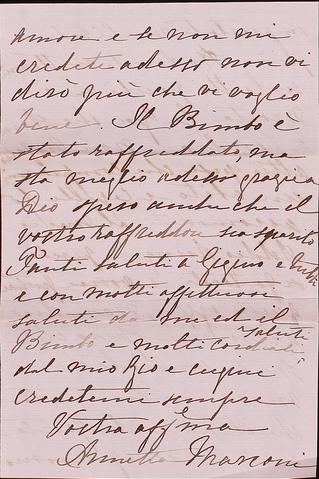 amore e se non mi
credete adesso non vi
dirò più che vi voglio
bene. Il Bimbo è
stato raffreddato, ma
sta meglio adesso grazie a
Dio spero anche che il
vostro raffreddore sia sparito
Tanti saluti a Gigino e tutti
e con molti affettuosi
saluti da me ed il
Bimbo e molti cordiali saluti
dal mio Zio e cugini
credetemi sempre
Vostra affma
Annetta Marconi